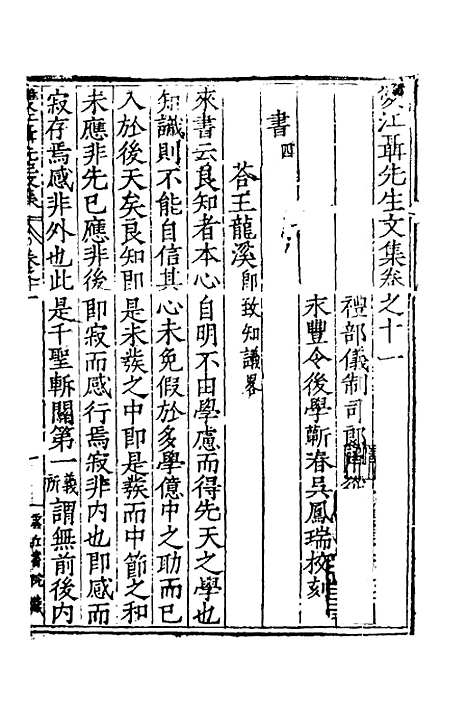 雙江聶先生文集卷之十一
禮部儀制司郎中
永豐令後學蘄春吳鳳瑞校刻
書四
荅王龍溪即致知議畧
來書云良知者本心自明不由學慮而得先天之學也
知識則不能自信其心未免假於多學億中之助而已
入於後天矣良知即是未𤼵之中即是𤼵而中節之和
未應非先已應非後即寂而感行焉寂非内也即感而
寂存焉感非外也此是千聖斬關第一義所謂無前後内
雲丘書院藏